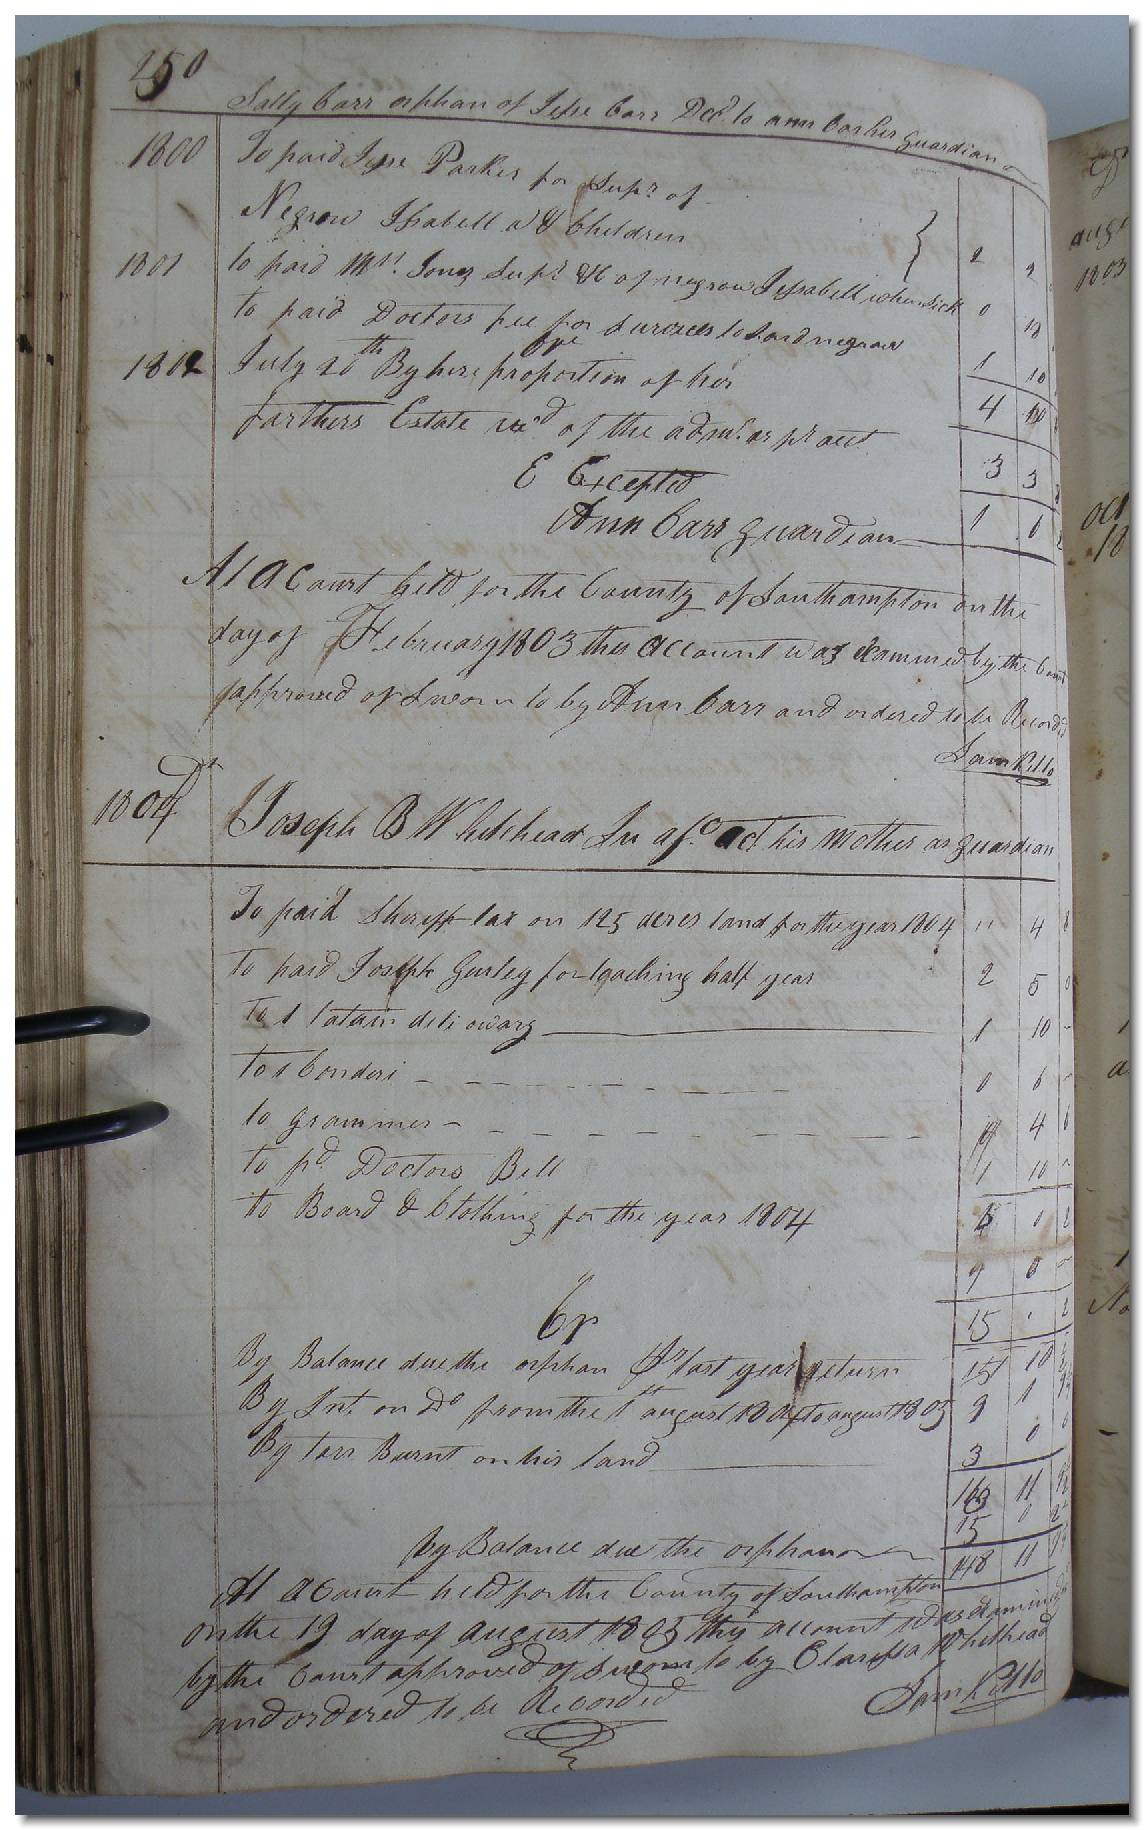 250
Sally Carr orphan of Jesse Carr Decd to ann Carr her guardian
1800 To paid Jesse Parker for Supt of
Negrow Issabell & Children 2 2
1801 to paid Mr. Jones Supt &c of negrow Issabell when Sick 0 18
to paid Doctors fee for Services to Said negrow 1 10
1802 July 20th By here proportion of her 4 10
farthers Estate recd of the admr. as pr acct
E Excepted 3 3
Ann Carr guardian 1 6
At a Court held for the County of Southampton on the
day of February 1803 this account was examined by the Court
approved of Sworn to by Ann Carr and ordered to be Recorded
Sam Kello
1804 Dr Joseph B Whitehead In a/c. his Mother as guardian
To paid Sheriff tax on 125 acres land for the year 1804 " 4 8
to paid Joseph Gurley for teaching half year 2 5 0
to 1 latain 1 10 -
to 1 Conderi 0 6 -
to grammer 4 6
to pd. Doctors Bill 1 10 -
to Board & Clothing for the year 1804 0 2
9 0 -
Cr 15 2
By Balance due the orphan pr last year return 10
By Int. on Do from the 1t august 1804 to august 1805 9 1
By tarr Burnt on his land 3 0 0
163 11
15 0 2
By Balance due the orphan 148 11
At a Court held for the County of Southampton
on the 19 day of august 1805 this account was examined
by the Court approved of Sworn to by Clarissa Whithead
and ordered to be Recorded Sam Kello
augu
1803
oct
18
No